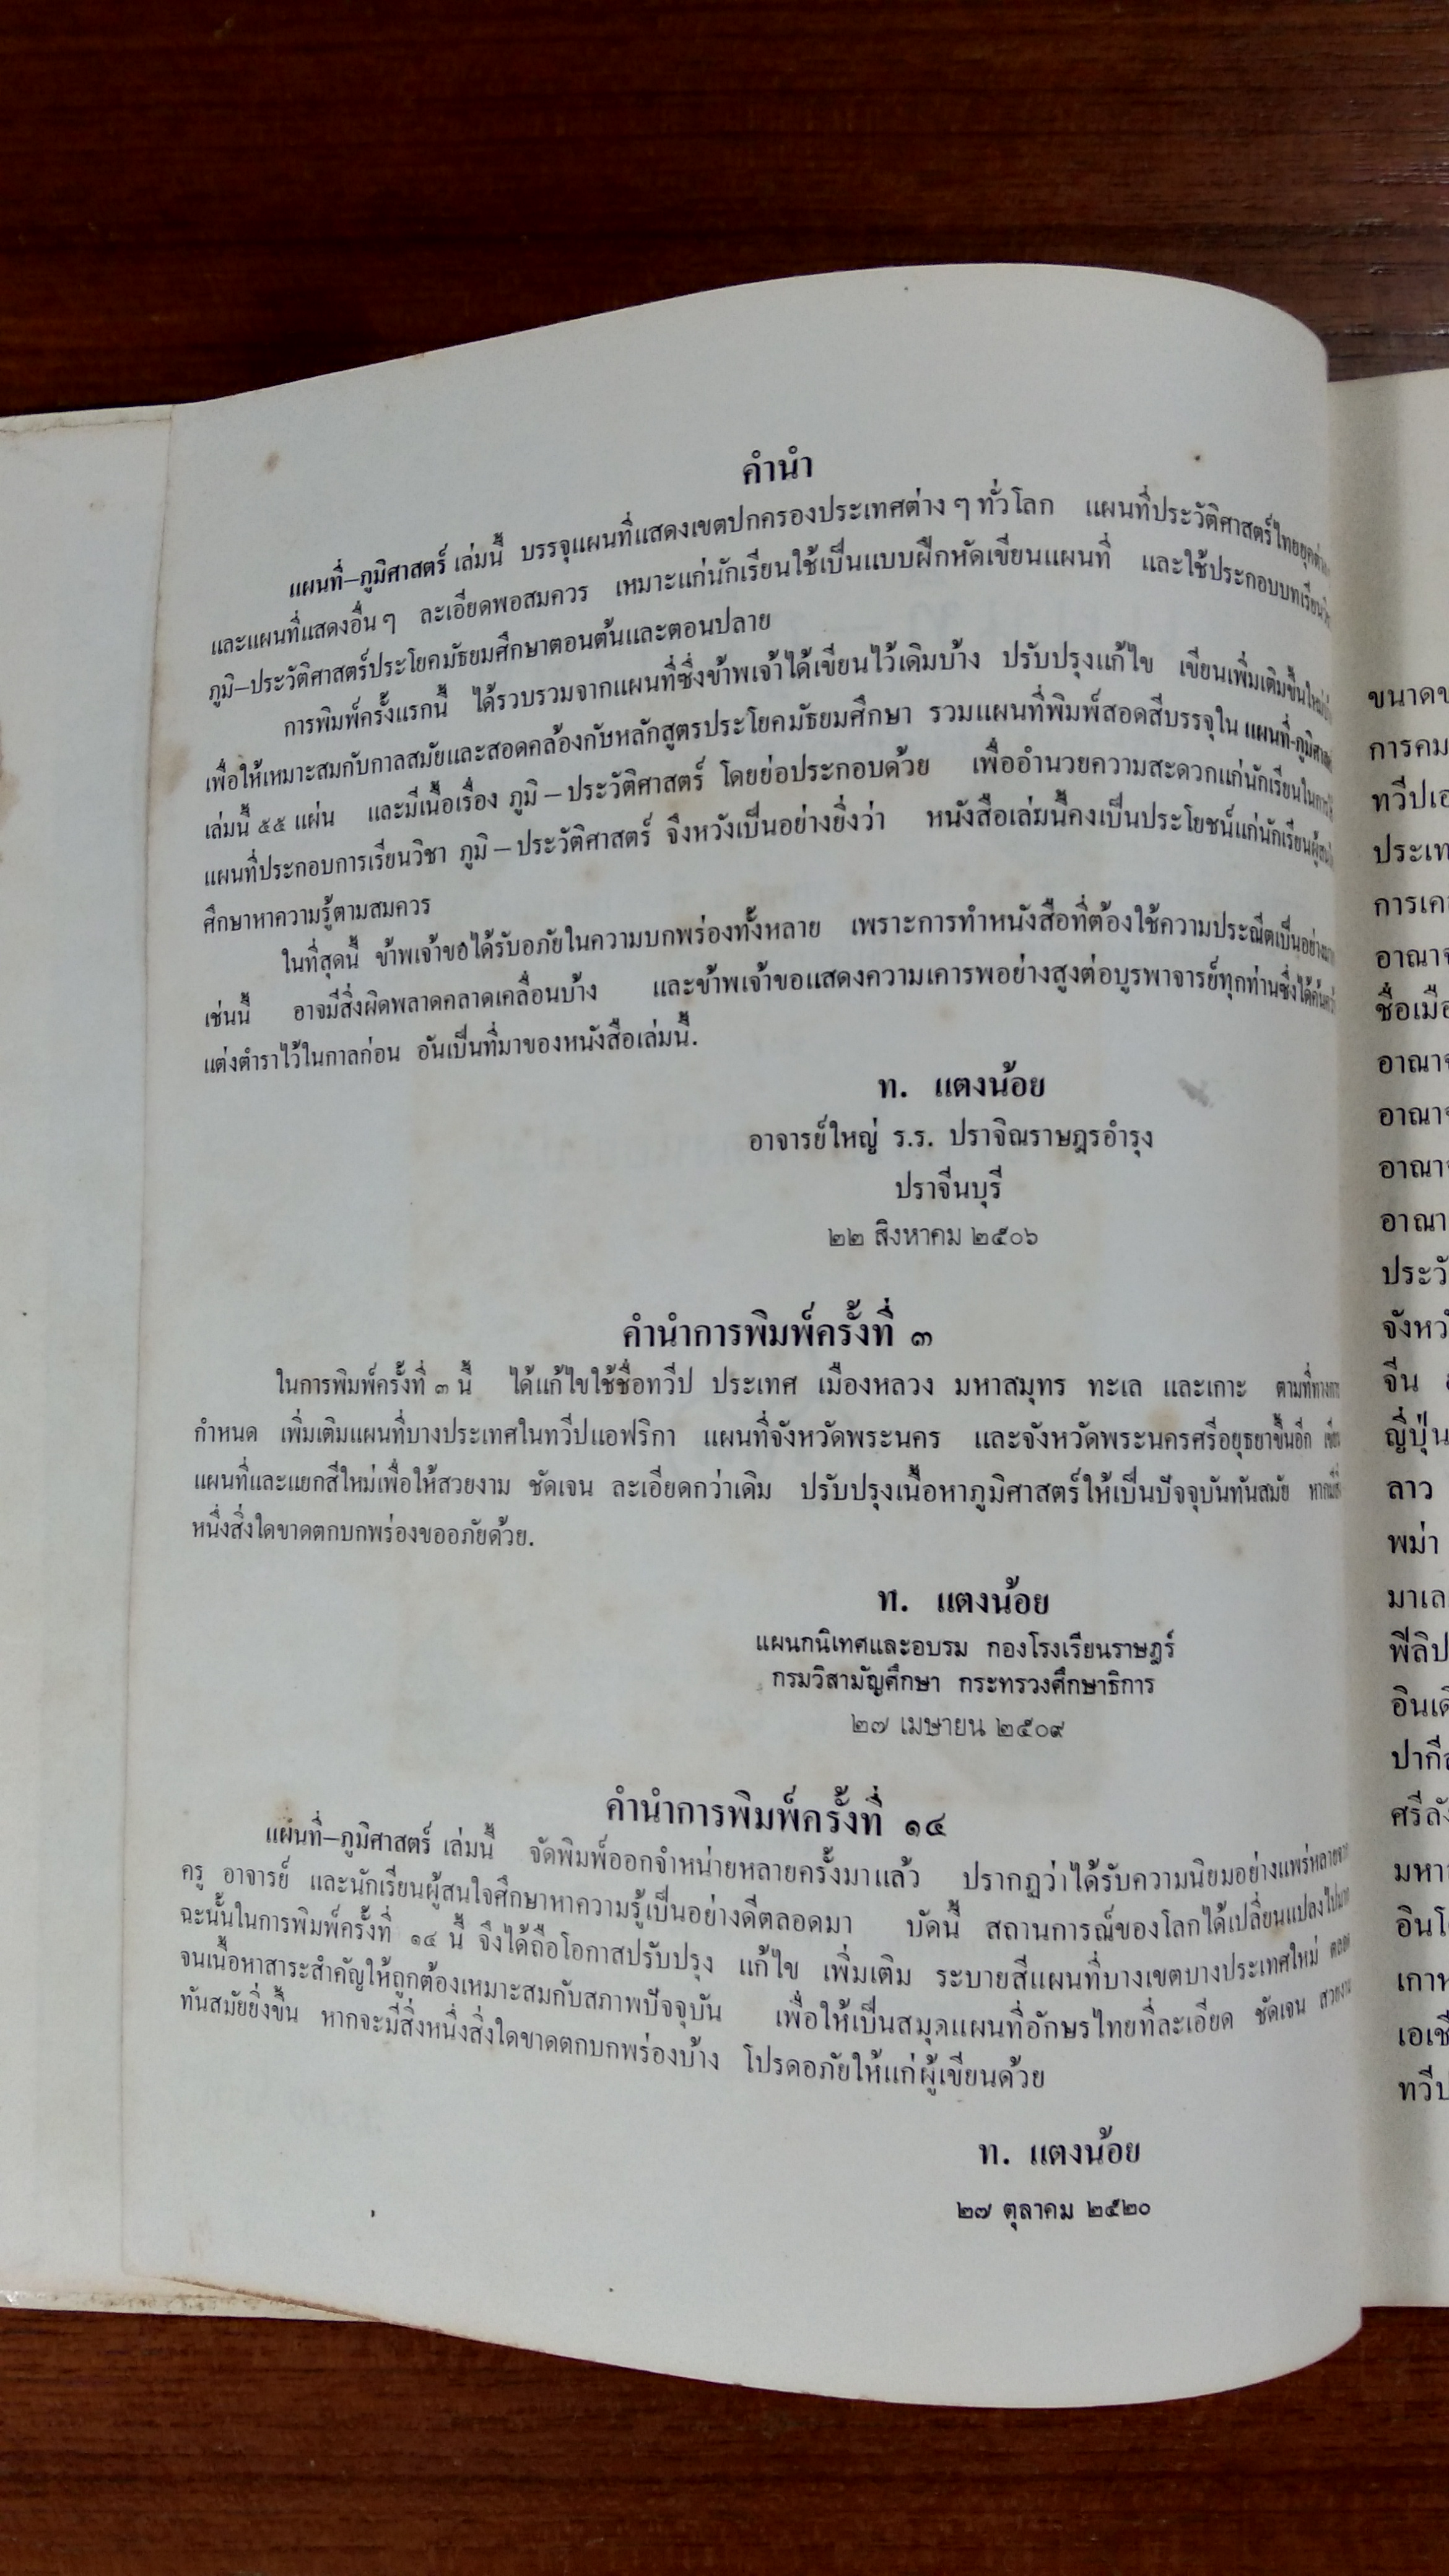 คำนำ
แผนที่–ภูมิศาสตร์ เล่มนี้ บรรจุแผนที่แสดงเขตปกครองประเทศต่าง ๆ ทั่วโลก แผนที่ประวัติศาสตร์ไทยยุคต่าง
และแผนที่แสดงอื่น ๆ ละเอียดพอสมควร เหมาะแก่นักเรียนใช้เป็นแบบฝึกหัดเขียนแผนที่ และใช้ประกอบบทเรียน
ภูมิ–ประวัติศาสตร์ประโยคมัธยมศึกษาตอนต้นและตอนปลาย
การพิมพ์ครั้งแรกนี้ ได้รวบรวมจากแผนที่ซึ่งข้าพเจ้าได้เขียนไว้เดิมบ้าง ปรับปรุงแก้ไข เขียนเพิ่มเติมขึ้นใหม่
เพื่อให้เหมาะสมกับกาลสมัยและสอดคล้องกับหลักสูตรประโยคมัธยมศึกษา รวมแผนที่พิมพ์สอดสีบรรจุใน แผนที่-ภูมิศาสตร์
เล่มนี้ ๕๕ แผ่น และมีเนื้อเรื่อง ภูมิ – ประวัติศาสตร์ โดยย่อประกอบด้วย เพื่ออำนวยความสะดวกแก่นักเรียนในการ
แผนที่ประกอบการเรียนวิชา ภูมิ – ประวัติศาสตร์ จึงหวังเป็นอย่างยิ่งว่า หนังสือเล่มนี้คงเป็นประโยชน์แก่นักเรียน
ศึกษาหาความรู้ตามสมควร
ในที่สุดนี้ ข้าพเจ้าขอได้รับอภัยในความบกพร่องทั้งหลาย เพราะการทำหนังสือที่ต้องใช้ความประณีตเป็น
เช่นนี้ อาจมีสิ่งผิดพลาดคลาดเคลื่อนบ้าง และข้าพเจ้าขอแสดงความเคารพอย่างสูงต่อบูรพาจารย์ทุกท่านซึ่งได้ค้นคว้า
แต่งตำราไว้ในกาลก่อน อันเป็นที่มาของหนังสือเล่มนี้.
ท. แตงน้อย
อาจารย์ใหญ่ ร.ร. ปราจิณราษฎรอำรุง
ปราจีนบุรี
๒๒ สิงหาคม ๒๕๐๖
คำนำการพิมพ์ครั้งที่ ๓
ในการพิมพ์ครั้งที่ ๓ นี้ ได้แก้ไขใช้ชื่อทวีป ประเทศ เมืองหลวง มหาสมุทร ทะเล และเกาะ ตามที่
กำหนด เพิ่มเติมแผนที่บางประเทศในทวีปแอฟริกา แผนที่จังหวัดพระนคร และจังหวัดพระนครศรีอยุธยาขึ้นอีก
แผนที่และแยกสีใหม่เพื่อให้สวยงาม ชัดเจน ละเอียดกว่าเดิม ปรับปรุงเนื้อหาภูมิศาสตร์ให้เป็นปัจจุบันทันสมัย
หนึ่งสิ่งใดขาดตกบกพร่องขออภัยด้วย.
ท. แตงน้อย
แผนกนิเทศและอบรม กองโรงเรียนราษฎร์
กรมวิสามัญศึกษา กระทรวงศึกษาธิการ
๒๗ เมษายน ๒๕๐๙
คำนำการพิมพ์ครั้งที่ ๑๔
แผนที่–ภูมิศาสตร์ เล่มนี้ จัดพิมพ์ออกจำหน่ายหลายครั้งมาแล้ว ปรากฏว่าได้รับความนิยมอย่างแพร่หลายจาก
ครู อาจารย์ และนักเรียนผู้สนใจศึกษาหาความรู้เป็นอย่างดีตลอดมา บัดนี้ สถานการณ์ของโลกได้เปลี่ยนแปลงไปมาก
ฉะนั้นในการพิมพ์ครั้งที่ ๑๔ นี้ จึงได้ถือโอกาสปรับปรุง แก้ไข เพิ่มเติม ระบายสีแผนที่บางเขตบางประเทศใหม่ ตลอด
จนเนื้อหาสาระสำคัญให้ถูกต้องเหมาะสมกับสภาพปัจจุบัน เพื่อให้เป็นสมุดแผนที่อักษรไทยที่ละเอียด ชัดเจน สวยงาม
ทันสมัยยิ่งขึ้น หากจะมีสิ่งหนึ่งสิ่งใดขาดตกบกพร่องบ้าง โปรดอภัยให้แก่ผู้เขียนด้วย
ท. แตงน้อย
๒๗ ตุลาคม ๒๕๒๐
การคม
ชื่อเมือ
จีน
ลาว
พม่า